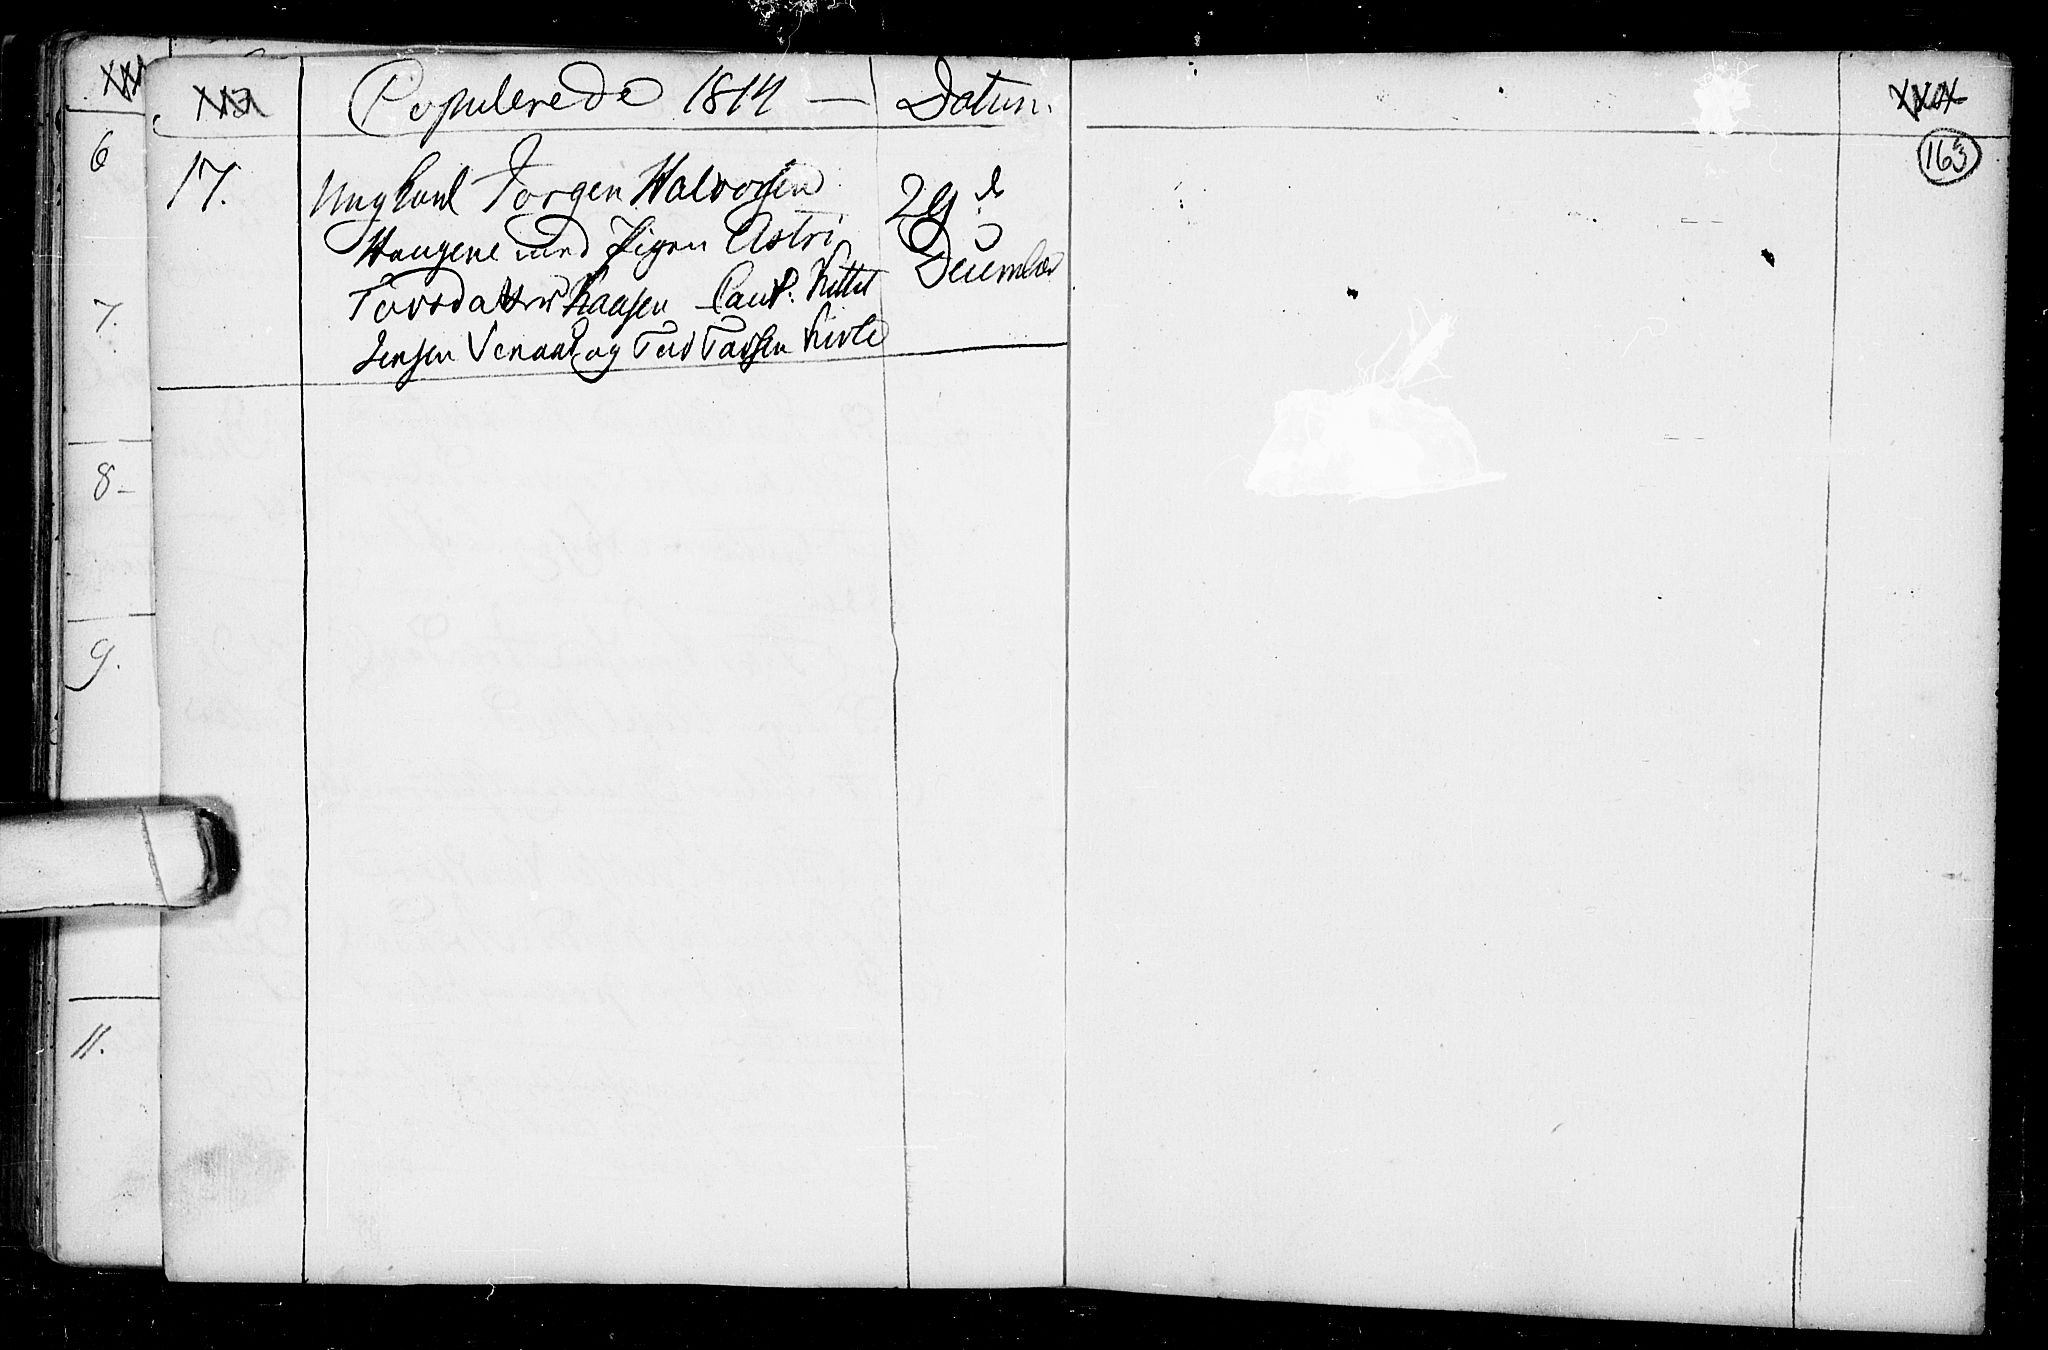 6
7.
8-
9.
11.
Copulerede 1814 — Datum.
17.
Ungkarl Jörgen Halvorsen
Haugene med Pigen Astri
Torsdatter Kaasen Caut. Kittil
Jensen Venaas og Tov Tovsen Kivle
29de
December
163